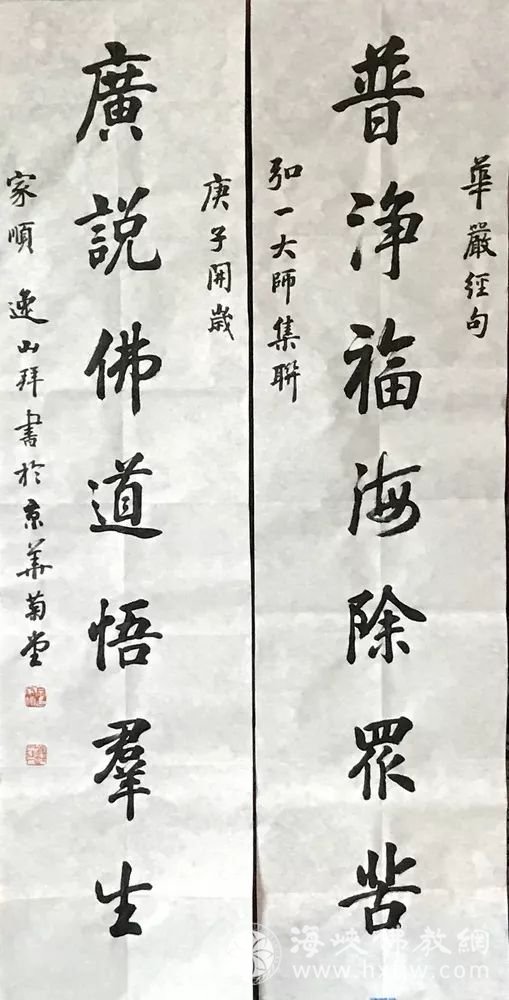 華嚴經句
普淨福海除眾苦
弘一大師集聯
庚子開歲
廣說佛道悟羣生
家順 逸山拜書於京華菊堂
海峽佛教網
www.hxfjw.com